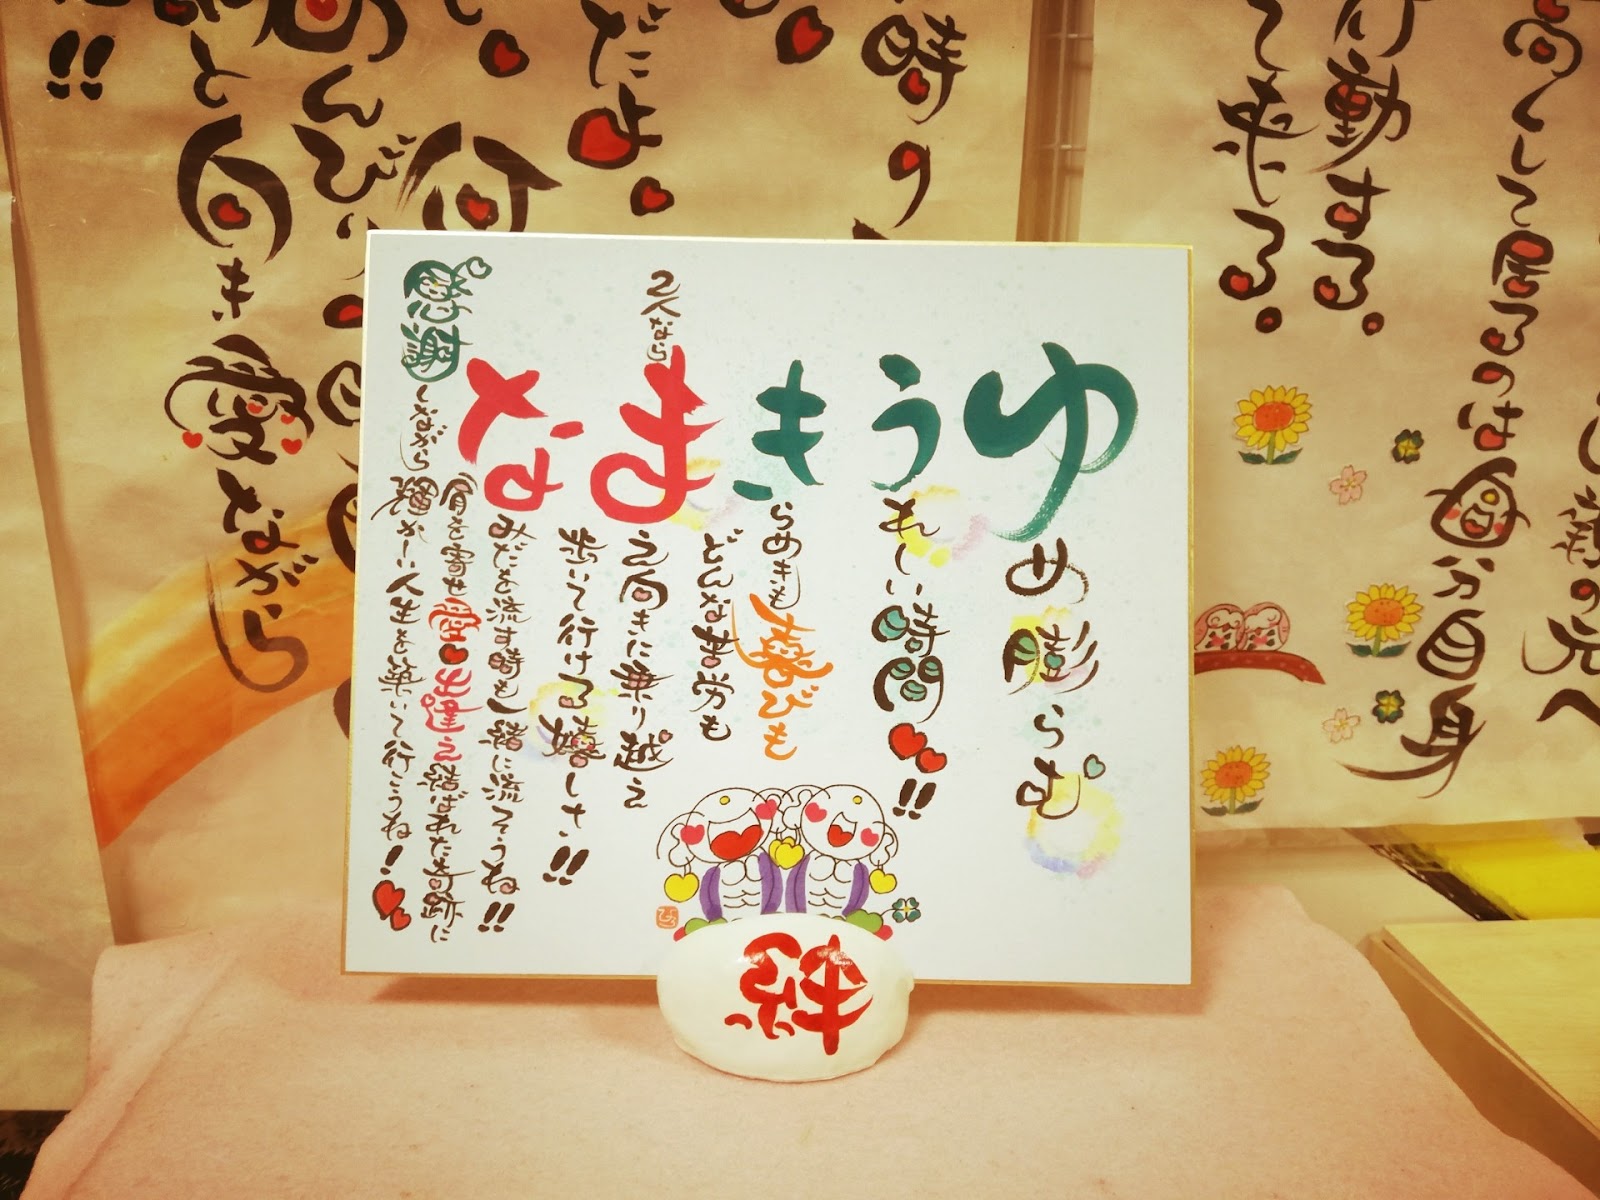 ゆめ膨らむ
うれしい時間!!
きらめきも喜びも
どんな苦労も
2人なら
まえ向きに乗り越え
歩いて行ける嬉しさ!!
なみだを流す時も一緒に流そうね!!
肩を寄せ愛出逢え結ばれた奇跡に
感謝しながら輝かしい人生を築いて行こうね!
絆
時の
だよ。
のんびり
と向き愛ながら
!!
高くして居るのは自分自身
行動する。
て来る。
の元へ